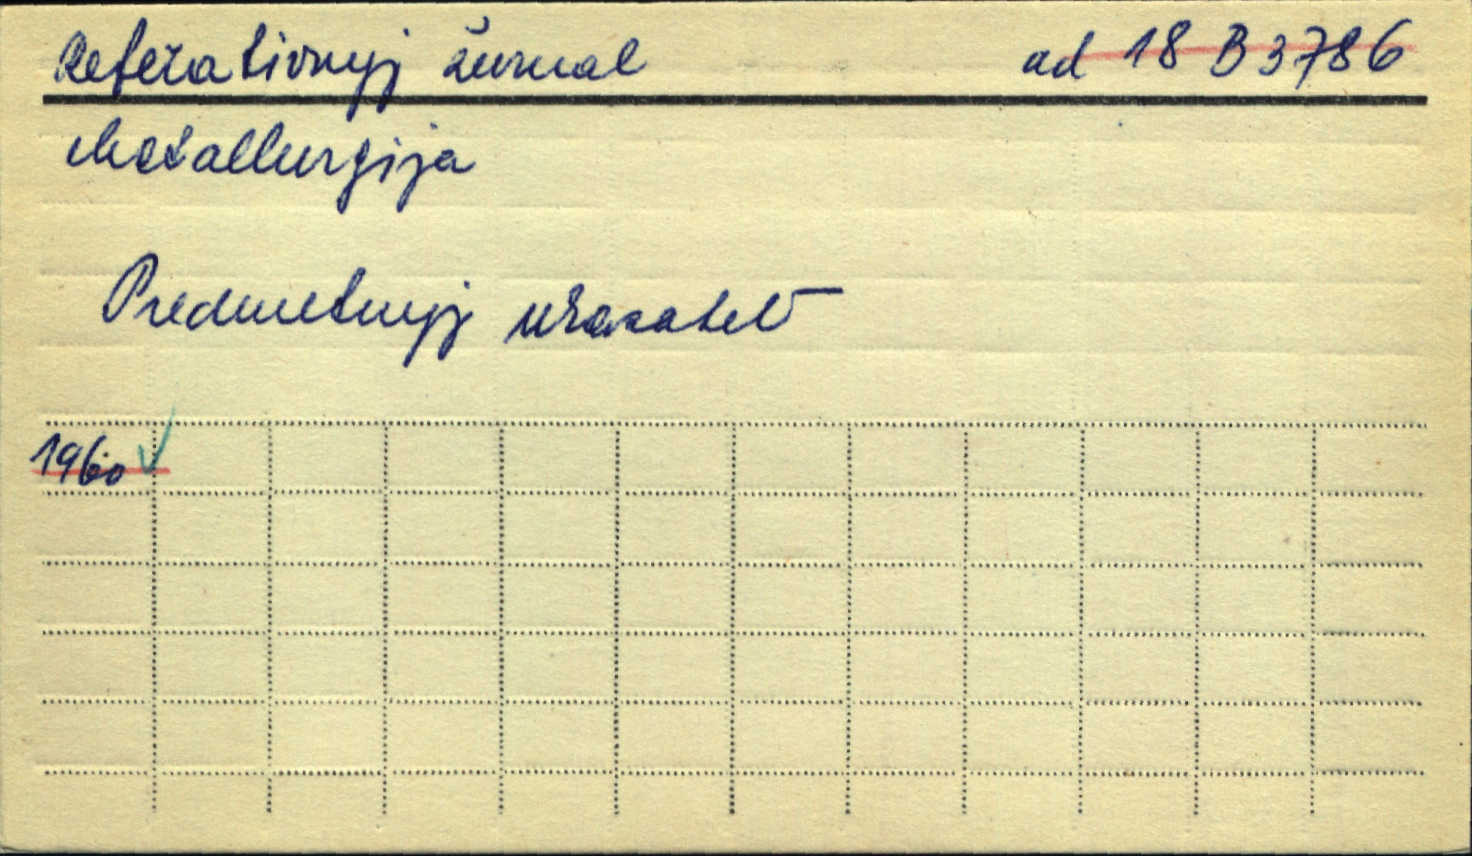 Referativnyj žurnal ad 18 B 3786
Metallurgija
Predmetnyj ukazatel'
1960